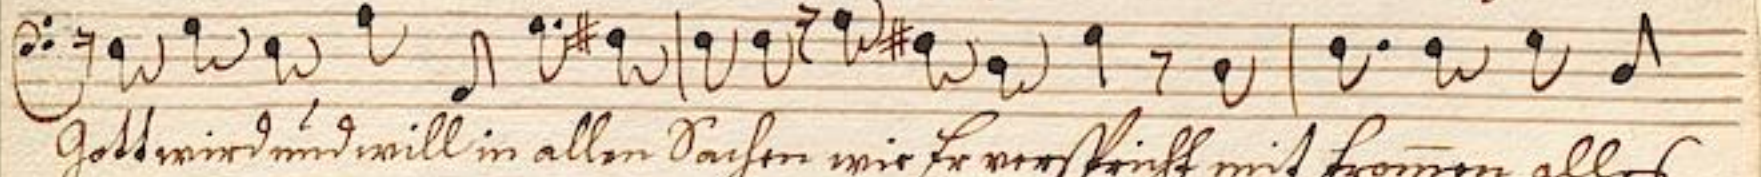 Gott wird und will in allen Sachen wie Er verspricht mit From̅en alles